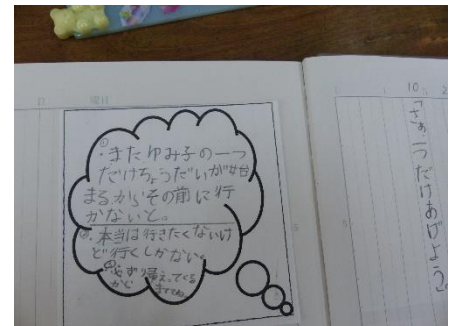 月 曜日
①
・またゆみ子の一つ
だけちょうだいが始
まるからその前に行
かないと。
②・本当は行きたくないけ
ど行くしかない。
③必ず帰ってくる
から まててね。
10
「さあ、一つだけあげよう。